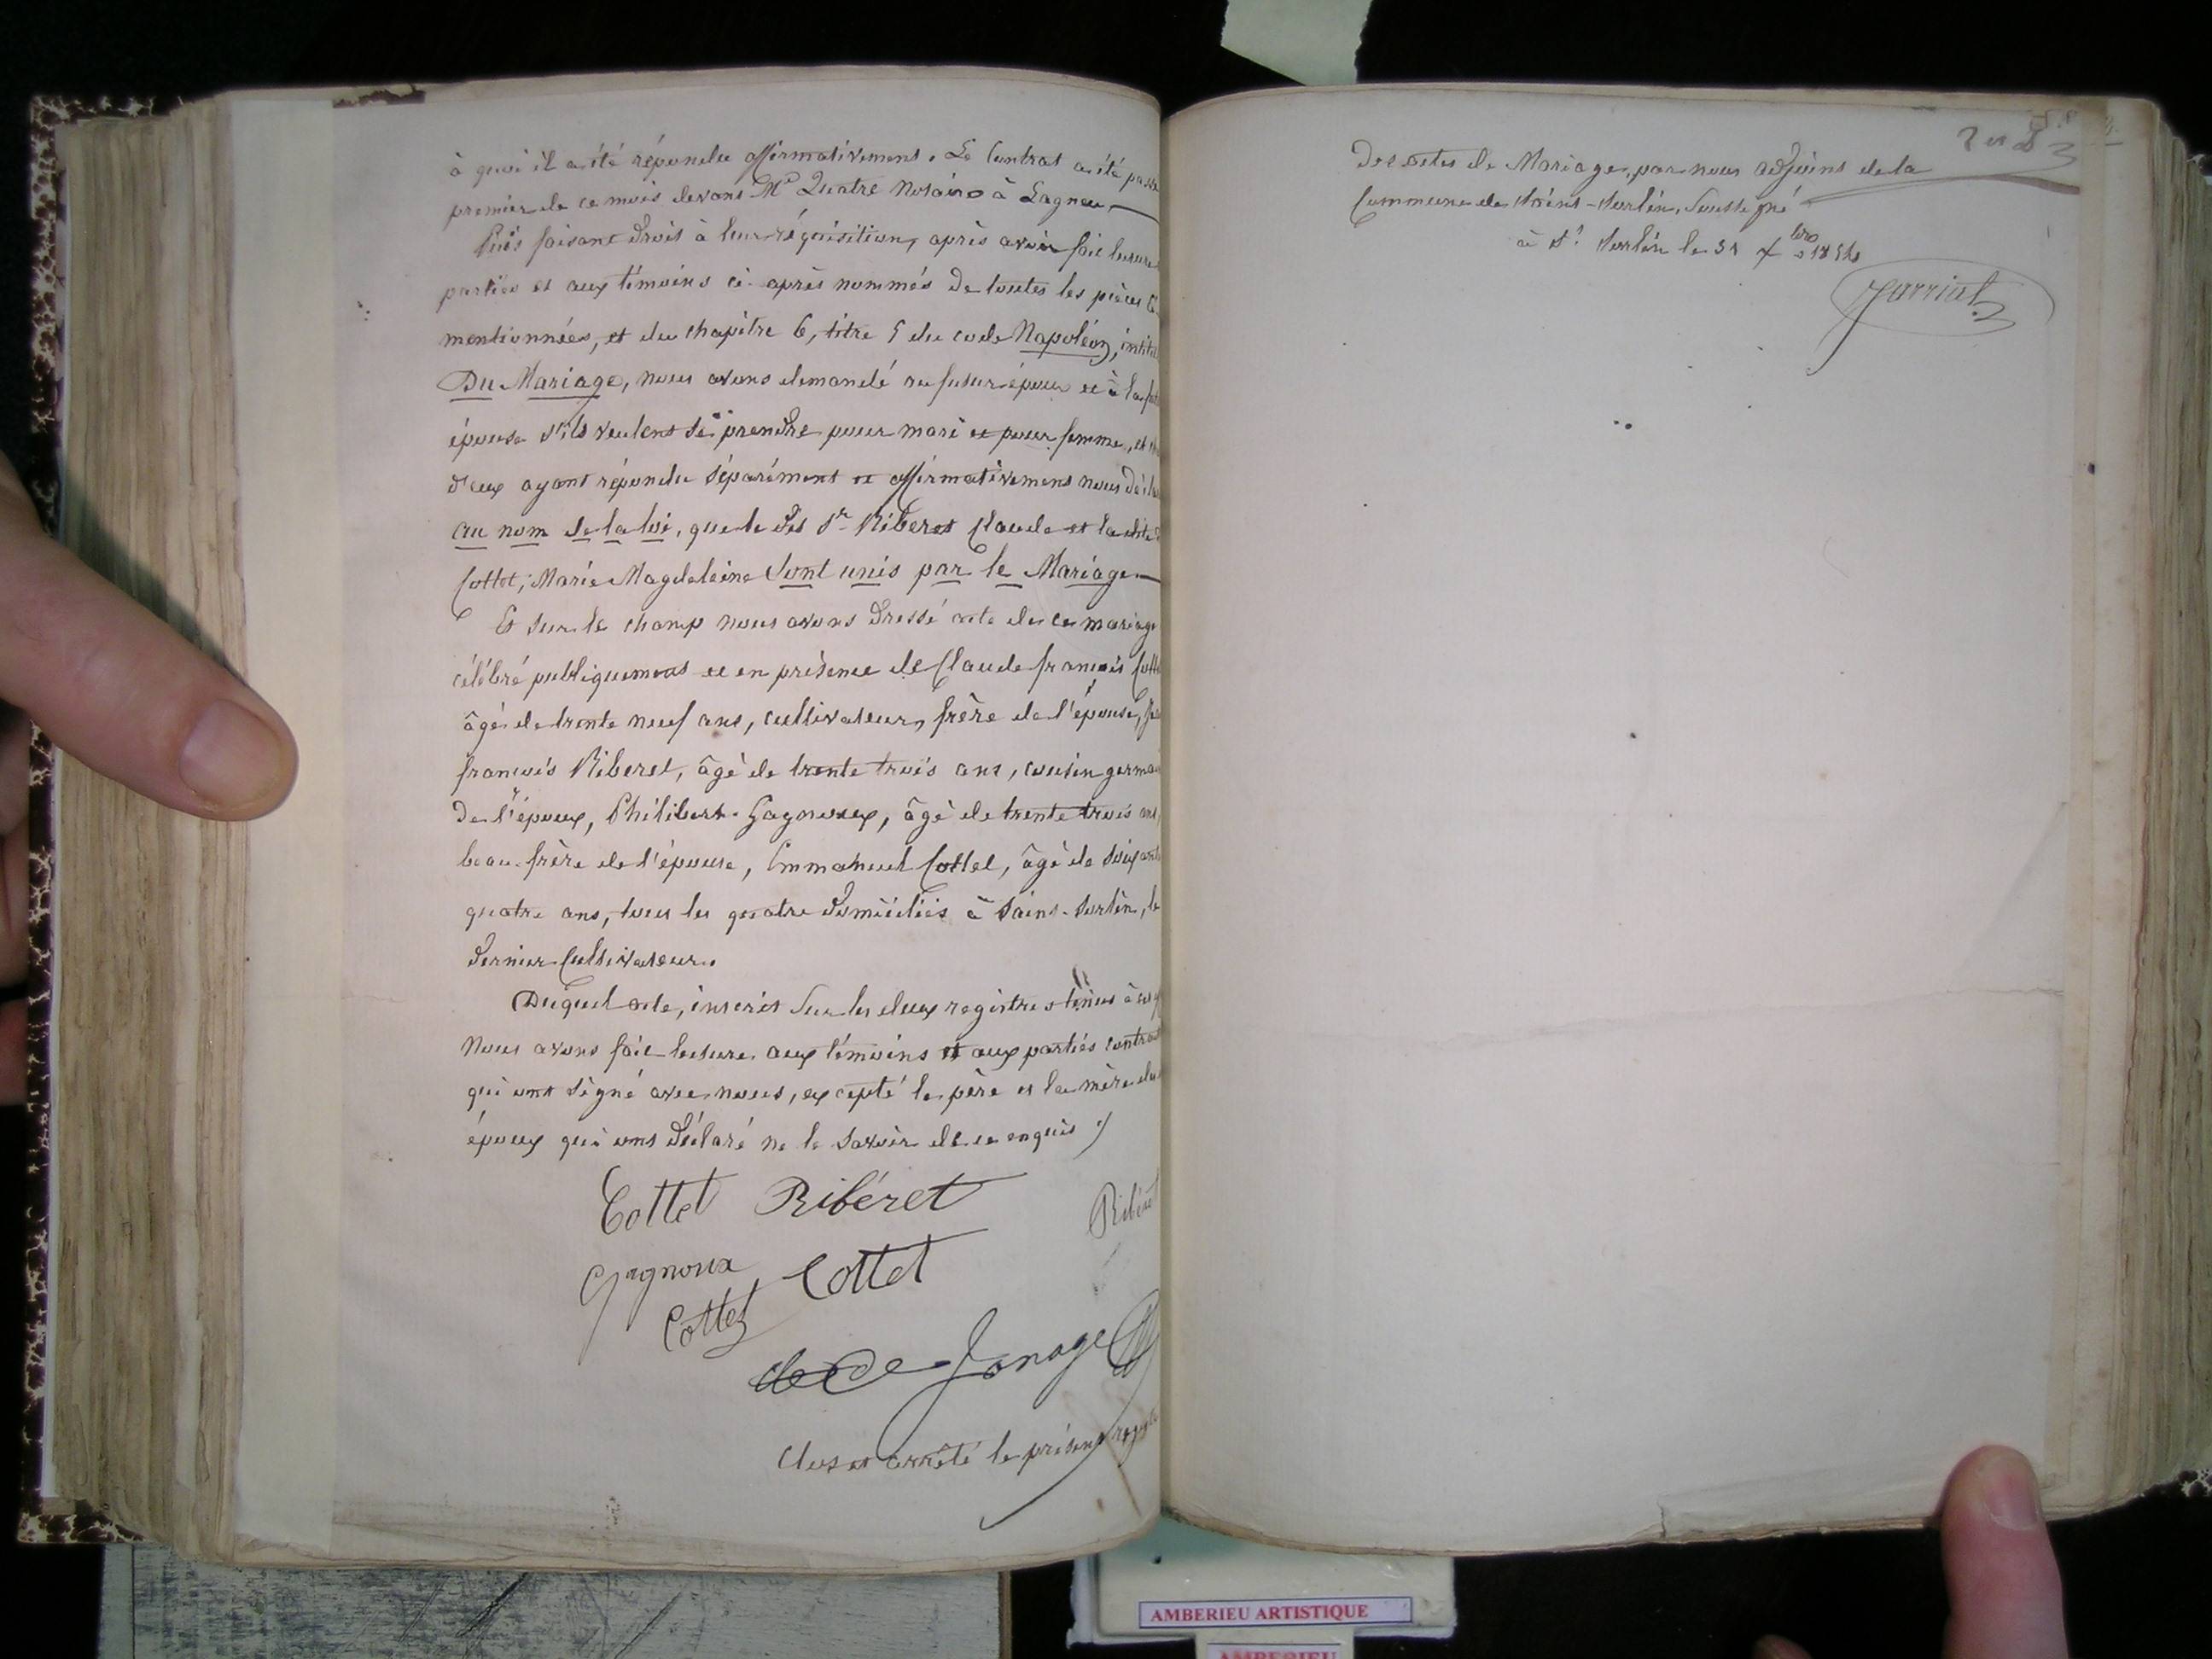 à quoi il a été répondu affirmativement. Le Contrat a été passé
premier de ce mois devant Me Quatre Notaire à Lagneu,
Puis faisant droit à leur réquisition, après avoir fait lecture
parties et aux témoins ci-après nommés de toutes les pièces
mentionnées, et du chapitre 6, titre 5 du code Napoléon,
Du Mariage, nous avons demandé au futur époux et à la
épouse s'ils veulent se prendre pour mari et pour femme, et
d'eux ayant répondu séparément et affirmativement nous
au nom de la loi, que le dit Sr Riberet Claude et la dite
Cottet, Marie Magdeleine sont unis par le Mariage
Et sur le champ nous avons dressé acte de ce mariage
célébré publiquement et en présence de Claude françois
âgé de trente neuf ans, cultivateur, frère de l'épouse,
françois Riberet, âgé de trente trois ans, cousin germa
de l'époux, Philibert Gagnoux, âgé de trente trois ans,
beau-frère de l'épouse, Emmanuel Cottet, âgé de soixante
quatre ans, tous les quatre domiciliés à Saint-Sorlin, le
dernier Cultivateur.
Duquel acte, inscrit sur les deux registres tenus à
Nous avons fait lecture aux témoins et aux parties
qui ont signé avec nous, excepté le père et la mère
époux qui ont déclaré ne le savoir de ce enquis
Cottet Ribéret
Ribéret
Gagnoux Cottet
Cottet
de Jonage
Clos et arrêté le présent
Des actes de Mariage, par nous adjoint de la
Commune de Saint-Sorlin, Soussigné
à St Sorlin le 31 Xbre
Jarriat
AMBERIEU ARTISTIQUE
AMBERIEU